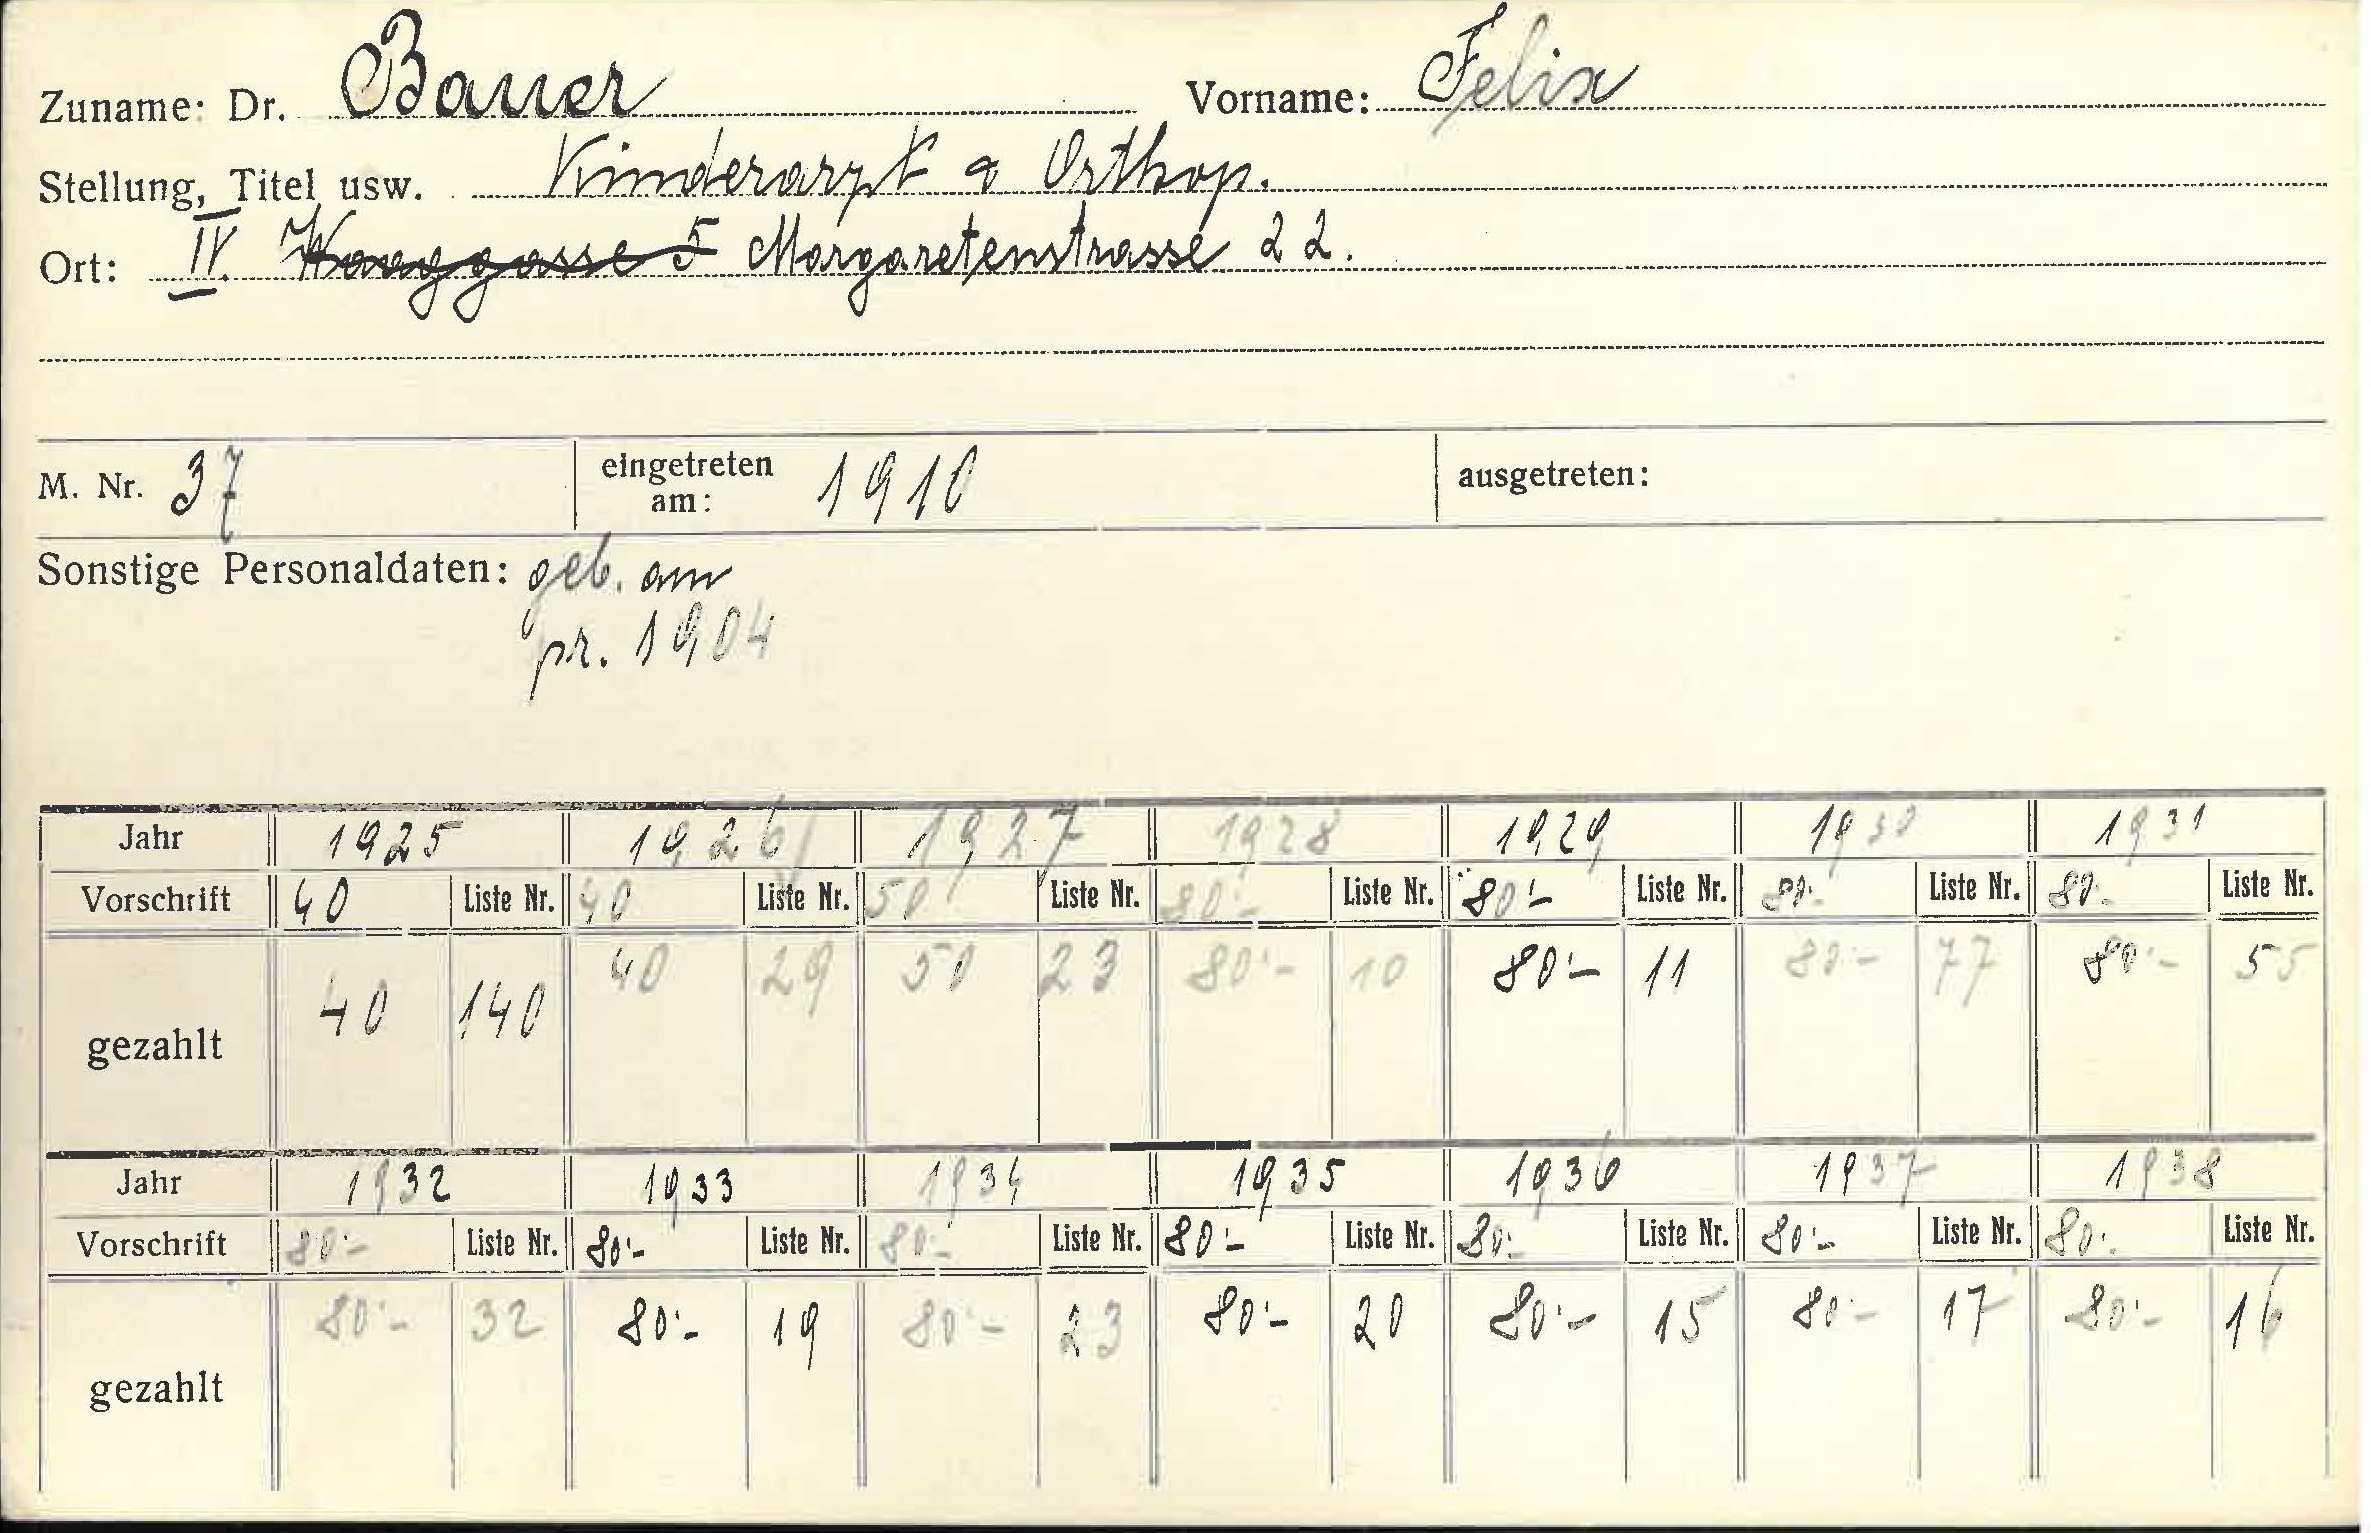 Zuname: Dr. Bauer Vorname: Felix
Stellung, Titel usw. Kinderarzt & Orthop.
Ort: IV. 5 Margaretenstrasse 22.
M. Nr. 37 eingetreten am: 1910 ausgetreten:
Sonstige Personaldaten: geb. am
pr. 1904
Jahr 1925 1926 1927 1928 1929 1930 1931
Vorschrift 40 Liste Nr. 40 Liste Nr. 50 Liste Nr. 80·- Liste Nr. 80·- Liste Nr. 80·- Liste Nr. 80·- Liste Nr.
gezahlt 40 140 40 29 50 23 80·- 10 80·- 11 80·- 77 80·- 55
Jahr 1932 1933 1934 1935 1936 1937 1938
Vorschrift 80·- Liste Nr. 80·- Liste Nr. 80·- Liste Nr. 80·- Liste Nr. 80·- Liste Nr. 80·- Liste Nr. 80·- Liste Nr.
gezahlt 80·- 32 80·- 19 80·- 23 80·- 20 80·- 15 80·- 17 80·- 16